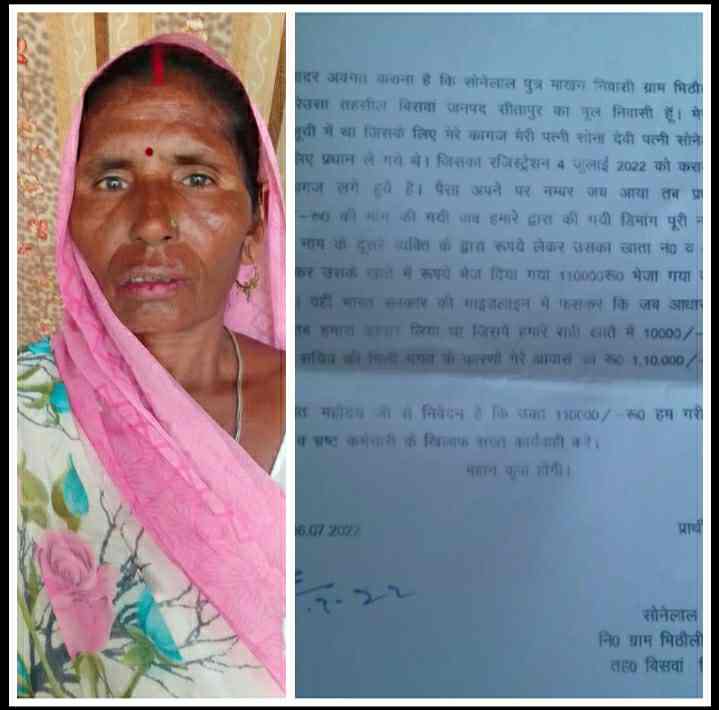 सादर अवगत कराना है कि सोनेलाल पुत्र माखन निवासी ग्राम मिठौ
रेउसा तहसील बिसवां जनपद सीतापुर का मूल निवासी हूँ। मे
सूची में था जिसके लिए मेरे कागज मेरी पत्नी सोना देवी पत्नी सोने
लिए प्रधान ले गये थे। जिसका रजिस्ट्रेशन 4 जुलाई 2022 को करा
लगे हुये है। पैसा अपने पर नम्बर जब आया तब प्र
-रू0 की मांग की गयी जब हमारे द्वारा की गयी डिमांग पूरी न
नाम के दूसरे व्यक्ति के द्वारा रूपये लेकर उसका खाता नं0 व
कर उसके खाते में रूपये भेज दिया गया 110000रू0 भेजा गया
वहीं भारत सरकार की गाइडलाइन में फसकर कि जब आधार
तब हमारा लिया था जिसमें हमारे सही खाते में 10000/-
सचिव की मिली भगत के कारणों मेरे आवास का रू0 1,10,000/-
महोदय जी से निवेदन है कि उक्त 110000/-रू0 हम गरी
व भ्रष्ट कर्मचारी के खिलाफ सख्त कार्यवाही करे।
महान कृपा होगी।
6.07.2022
प्रार्थी
.7.22
सोनेलाल
नि0 ग्राम मिठौली
तह0 बिसवां